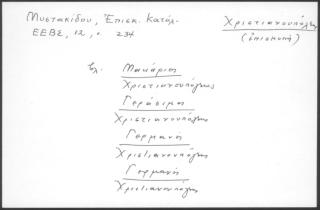 Μυστακίδου, Ἐπισκ. Κατάλ.
ΕΕΒΣ, 12, 234
Χριστιανουπόλεως
(ἐπισκοπή)
βλ. Μακάριος
Χριστιανουπόλεως
Γεράσιμος
Χριστιανουπόλεως
Γερμανός
Χριστιανουπόλεως
Γερμανός
Χριστιανουπόλεως